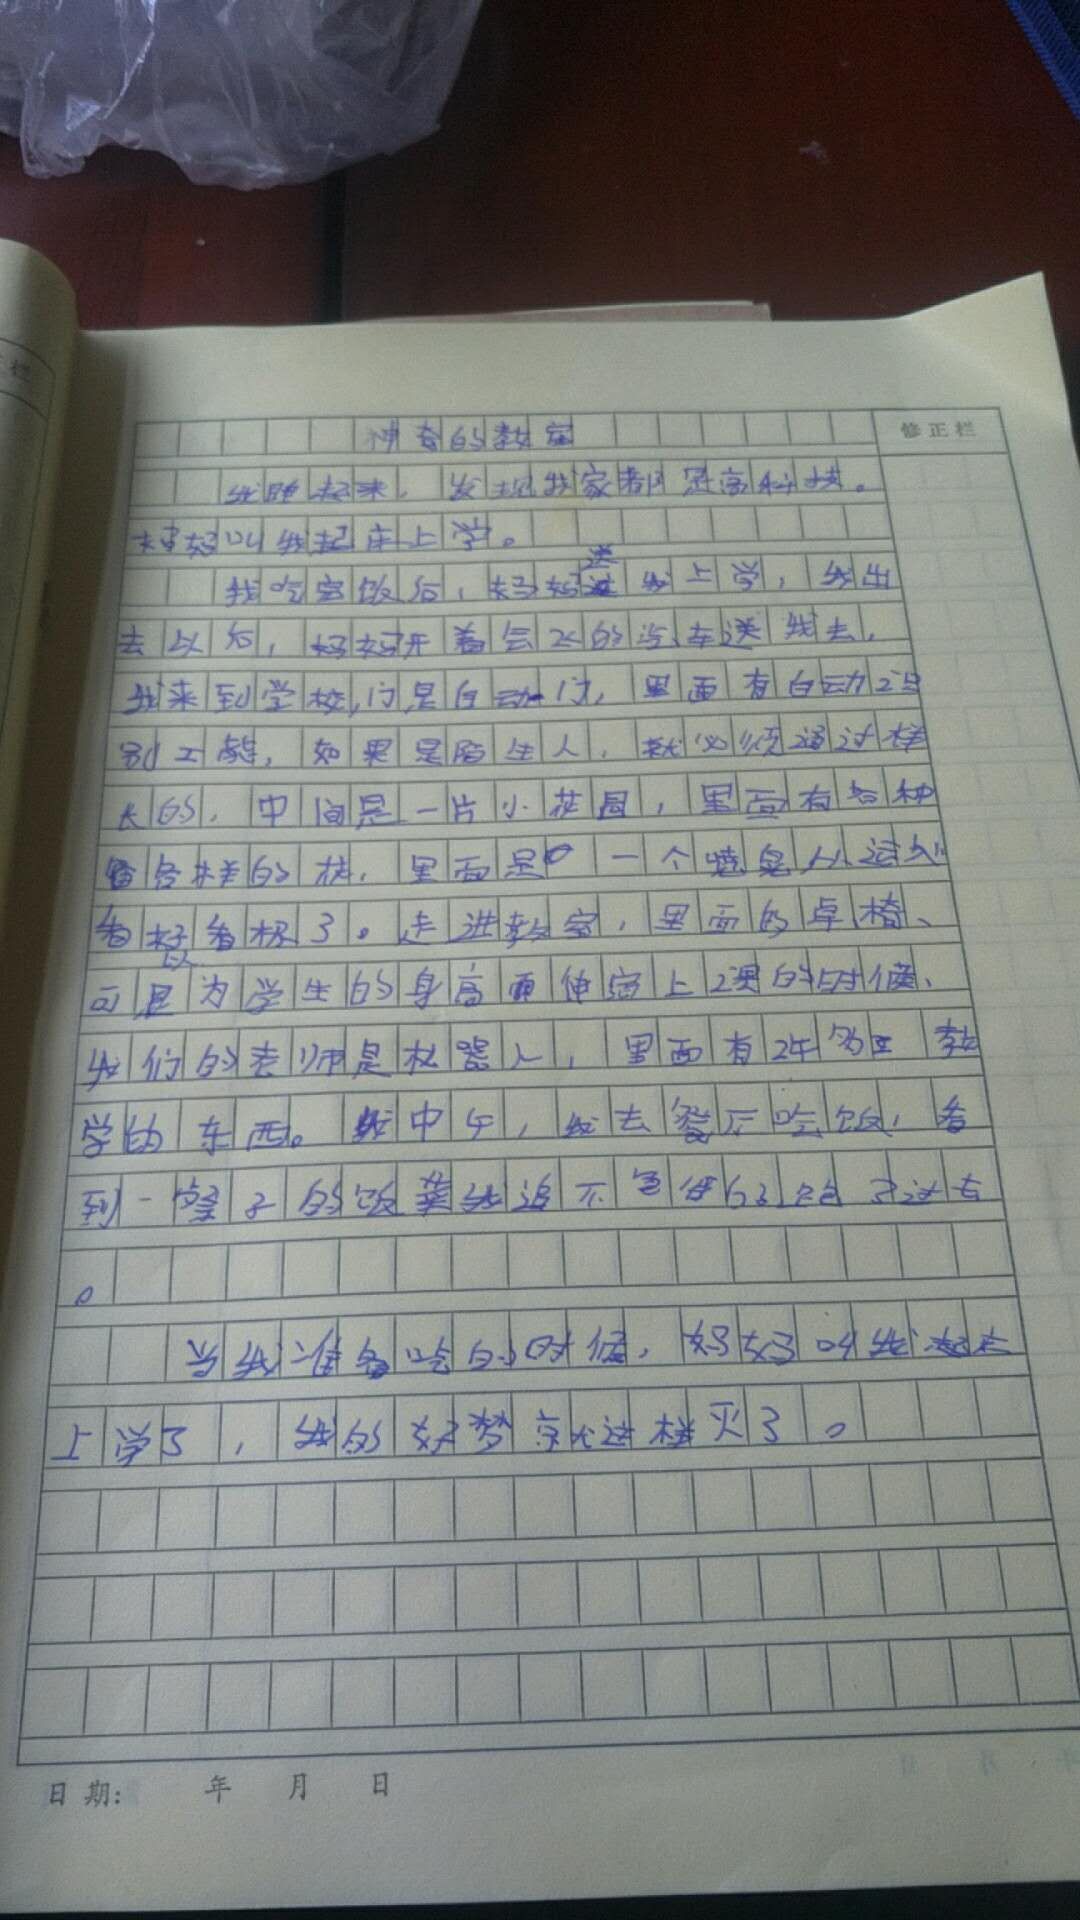 正栏
修正栏
神奇的教室
我睡起来，发现我家都是高科技。
妈妈叫我起床上学。
我吃完饭后，妈妈送我上学，我出
去以后，妈妈开着会飞的汽车送我去，
我来到学校，门是自动门，里面有自动识
别工能，如果是陌生人，就必须通过样
长的，中间是一片小花园，里面有各种
各样的花，里面是一个
看好看极了。走进教室，里面的卓椅、
可以为学生的身高而伸，上课的时候、
我们的老师是机器人，里面有许多教
学的东西。中午，我去餐厅吃饭，看
到一桌子的饭菜我迫不
。
当我准备吃的时候，妈妈叫我起去
上学了，我的好梦就这样灭了。
日期： 年 月 日